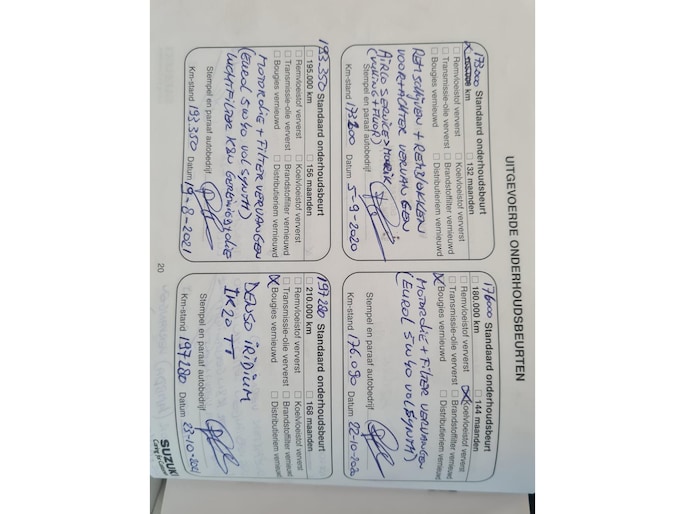 UITGEVOERDE ONDERHOUDSBEURTEN
173000 Standaard onderhoudsbeurt
km 132 maanden
Remvloeistof ververst Koelvloeistof ververst
Transmissie-olie ververst Brandstoffilter vernieuwd
Bougies vernieuwd Distributieriem vernieuwd
REMSCHIJVEN + REMBLOKKEN
VOOR+ACHTER VERVANGEN
AIRCO SERVICE>
Stempel en paraaf autobedrijf
Km-stand 173200 Datum 5-9-2020
176000 Standaard onderhoudsbeurt
180.000 km 144 maanden
Remvloeistof ververst X Koelvloeistof ververst
Transmissie-olie ververst Brandstoffilter vernieuwd
X Bougies vernieuwd Distributieriem vernieuwd
MOTOROLIE + FILTER VERVANGEN
(EUROL 5W40 VOL SYNTH)
Stempel en paraaf autobedrijf
Km-stand 176.090 Datum 22-10-2020
193.350 Standaard onderhoudsbeurt
195.000 km 156 maanden
Remvloeistof ververst Koelvloeistof ververst
Transmissie-olie ververst Brandstoffilter vernieuwd
Bougies vernieuwd Distributieriem vernieuwd
MOTOROLIE + FILTER VERVANGEN
(EUROL 5W40 VOL SYNTH)
LUCHTFILTER K&N
Stempel en paraaf autobedrijf
Km-stand 193.350 Datum 19-8-2021
197280 Standaard onderhoudsbeurt
210.000 km 168 maanden
Remvloeistof ververst Koelvloeistof ververst
Transmissie-olie ververst Brandstoffilter vernieuwd
X Bougies vernieuwd Distributieriem vernieuwd
DENSO IRIDIUM
IK20 TT
Stempel en paraaf autobedrijf
Km-stand 197280 Datum 23-10-2021
20
SUZUKI